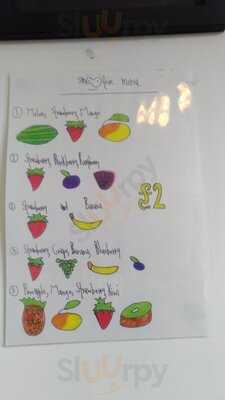 Menu
① Melon, Strawberry, Mango
② Strawberry, Blackberry, Raspberry
£2
④ Strawberry and Banana
⑤ Strawberry, Grapes, Banana, Blueberry
Pineapple, Mango, Strawberry, Kiwi
Sluurpy